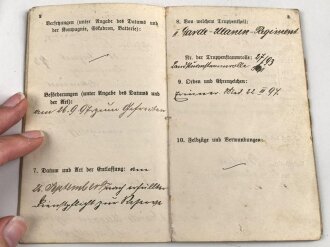 2
Versetzungen (unter Angabe des Datums und
der Kompagnie, Eskadron, Batterie):
Beförderungen (unter Angabe des Datums und
der Art):
am 26. 9. 97. zum Gefreiten
7. Datum und Art der Entlassung: am
26. September nach erfüllter
Dienstpflicht zur Reserve
3
8. Bei welchem Truppentheil:
Garde-Ulanen-Regiment
Nr. der Truppenstammrolle: 27/93
9. Orden und Ehrenzeichen:
22 III 97.
10. Feldzüge und Verwundungen: